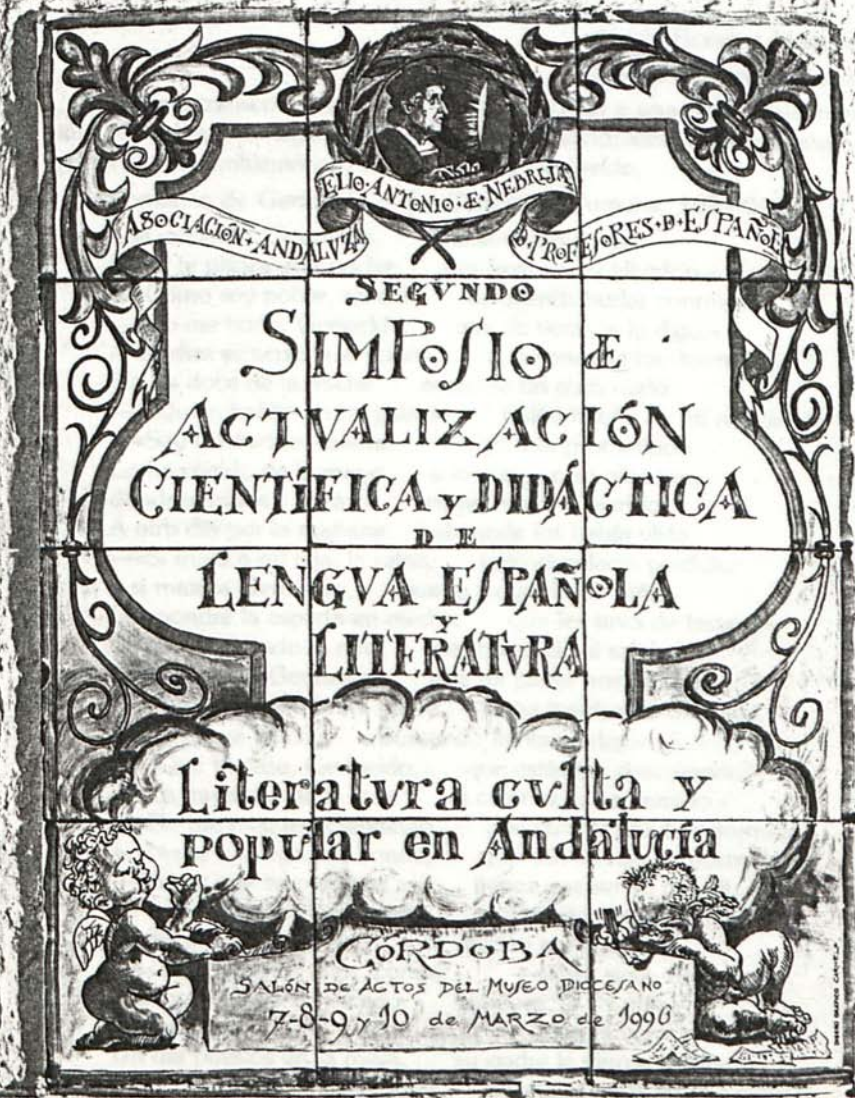 ELIO·ANTONIO·E·NEBRIJA
ASOCIACIÓN·ANDALVZA D·PROFESORES·D·ESPAÑOL
SEGVNDO
SIMPOSIO E
ACTVALIZACIÓN
CIENTÍFICA y DIDÁCTICA
DE
LENGVA ESPAÑOLA
y
LITERATVRA
Literatvra cvlta y
popular en Andalucía
CÓRDOBA
SALÓN DE ACTOS DEL MUSEO DIOCESANO
7-8-9 y 10 de MARZO de 1996